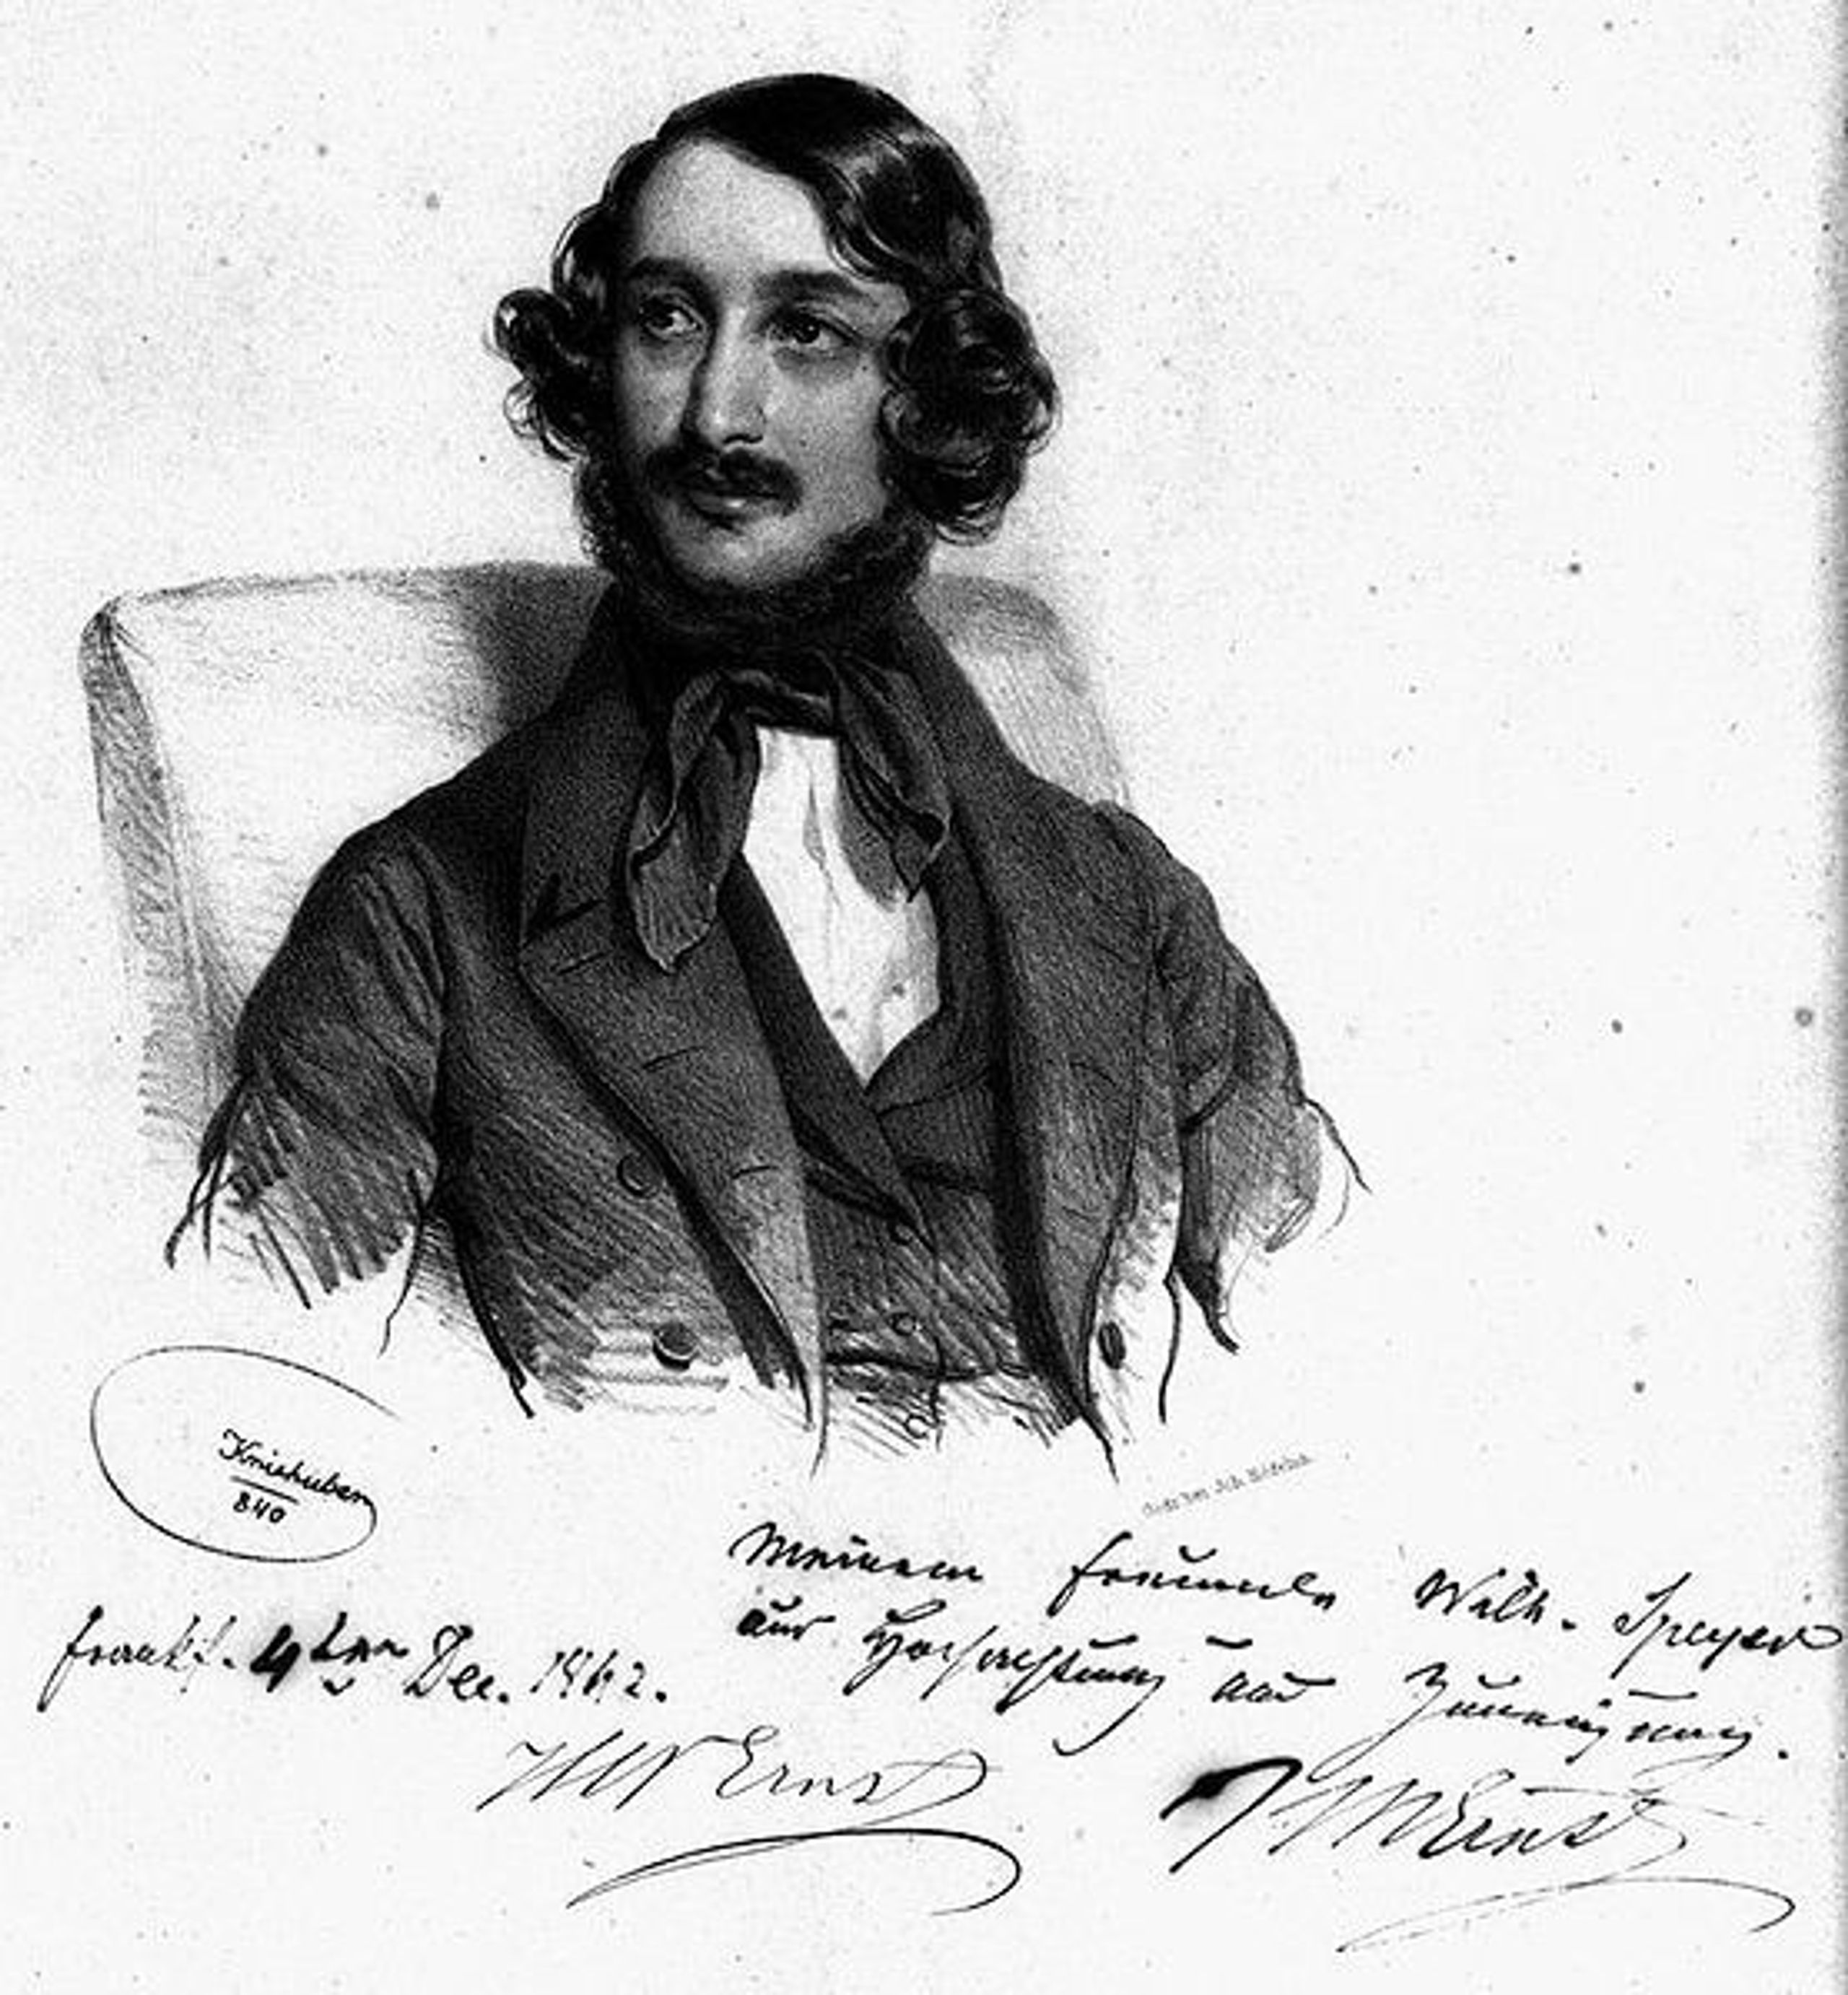 Kriehuber
840
Gedr. bei Joh. Höfelich
Meinem Freunde Wilh. Speyer
aus Hochachtung und Zuneigung.
Frankf. 4ten Dec. 1842.
HW Ernst
HWErnst